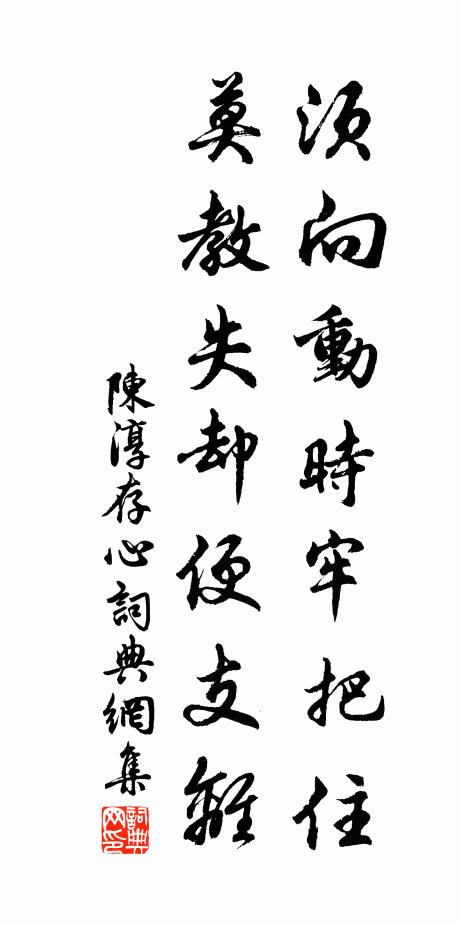 須向動時牢把住
莫教失却便支離
陳淳存心詞典網集
詞典網印